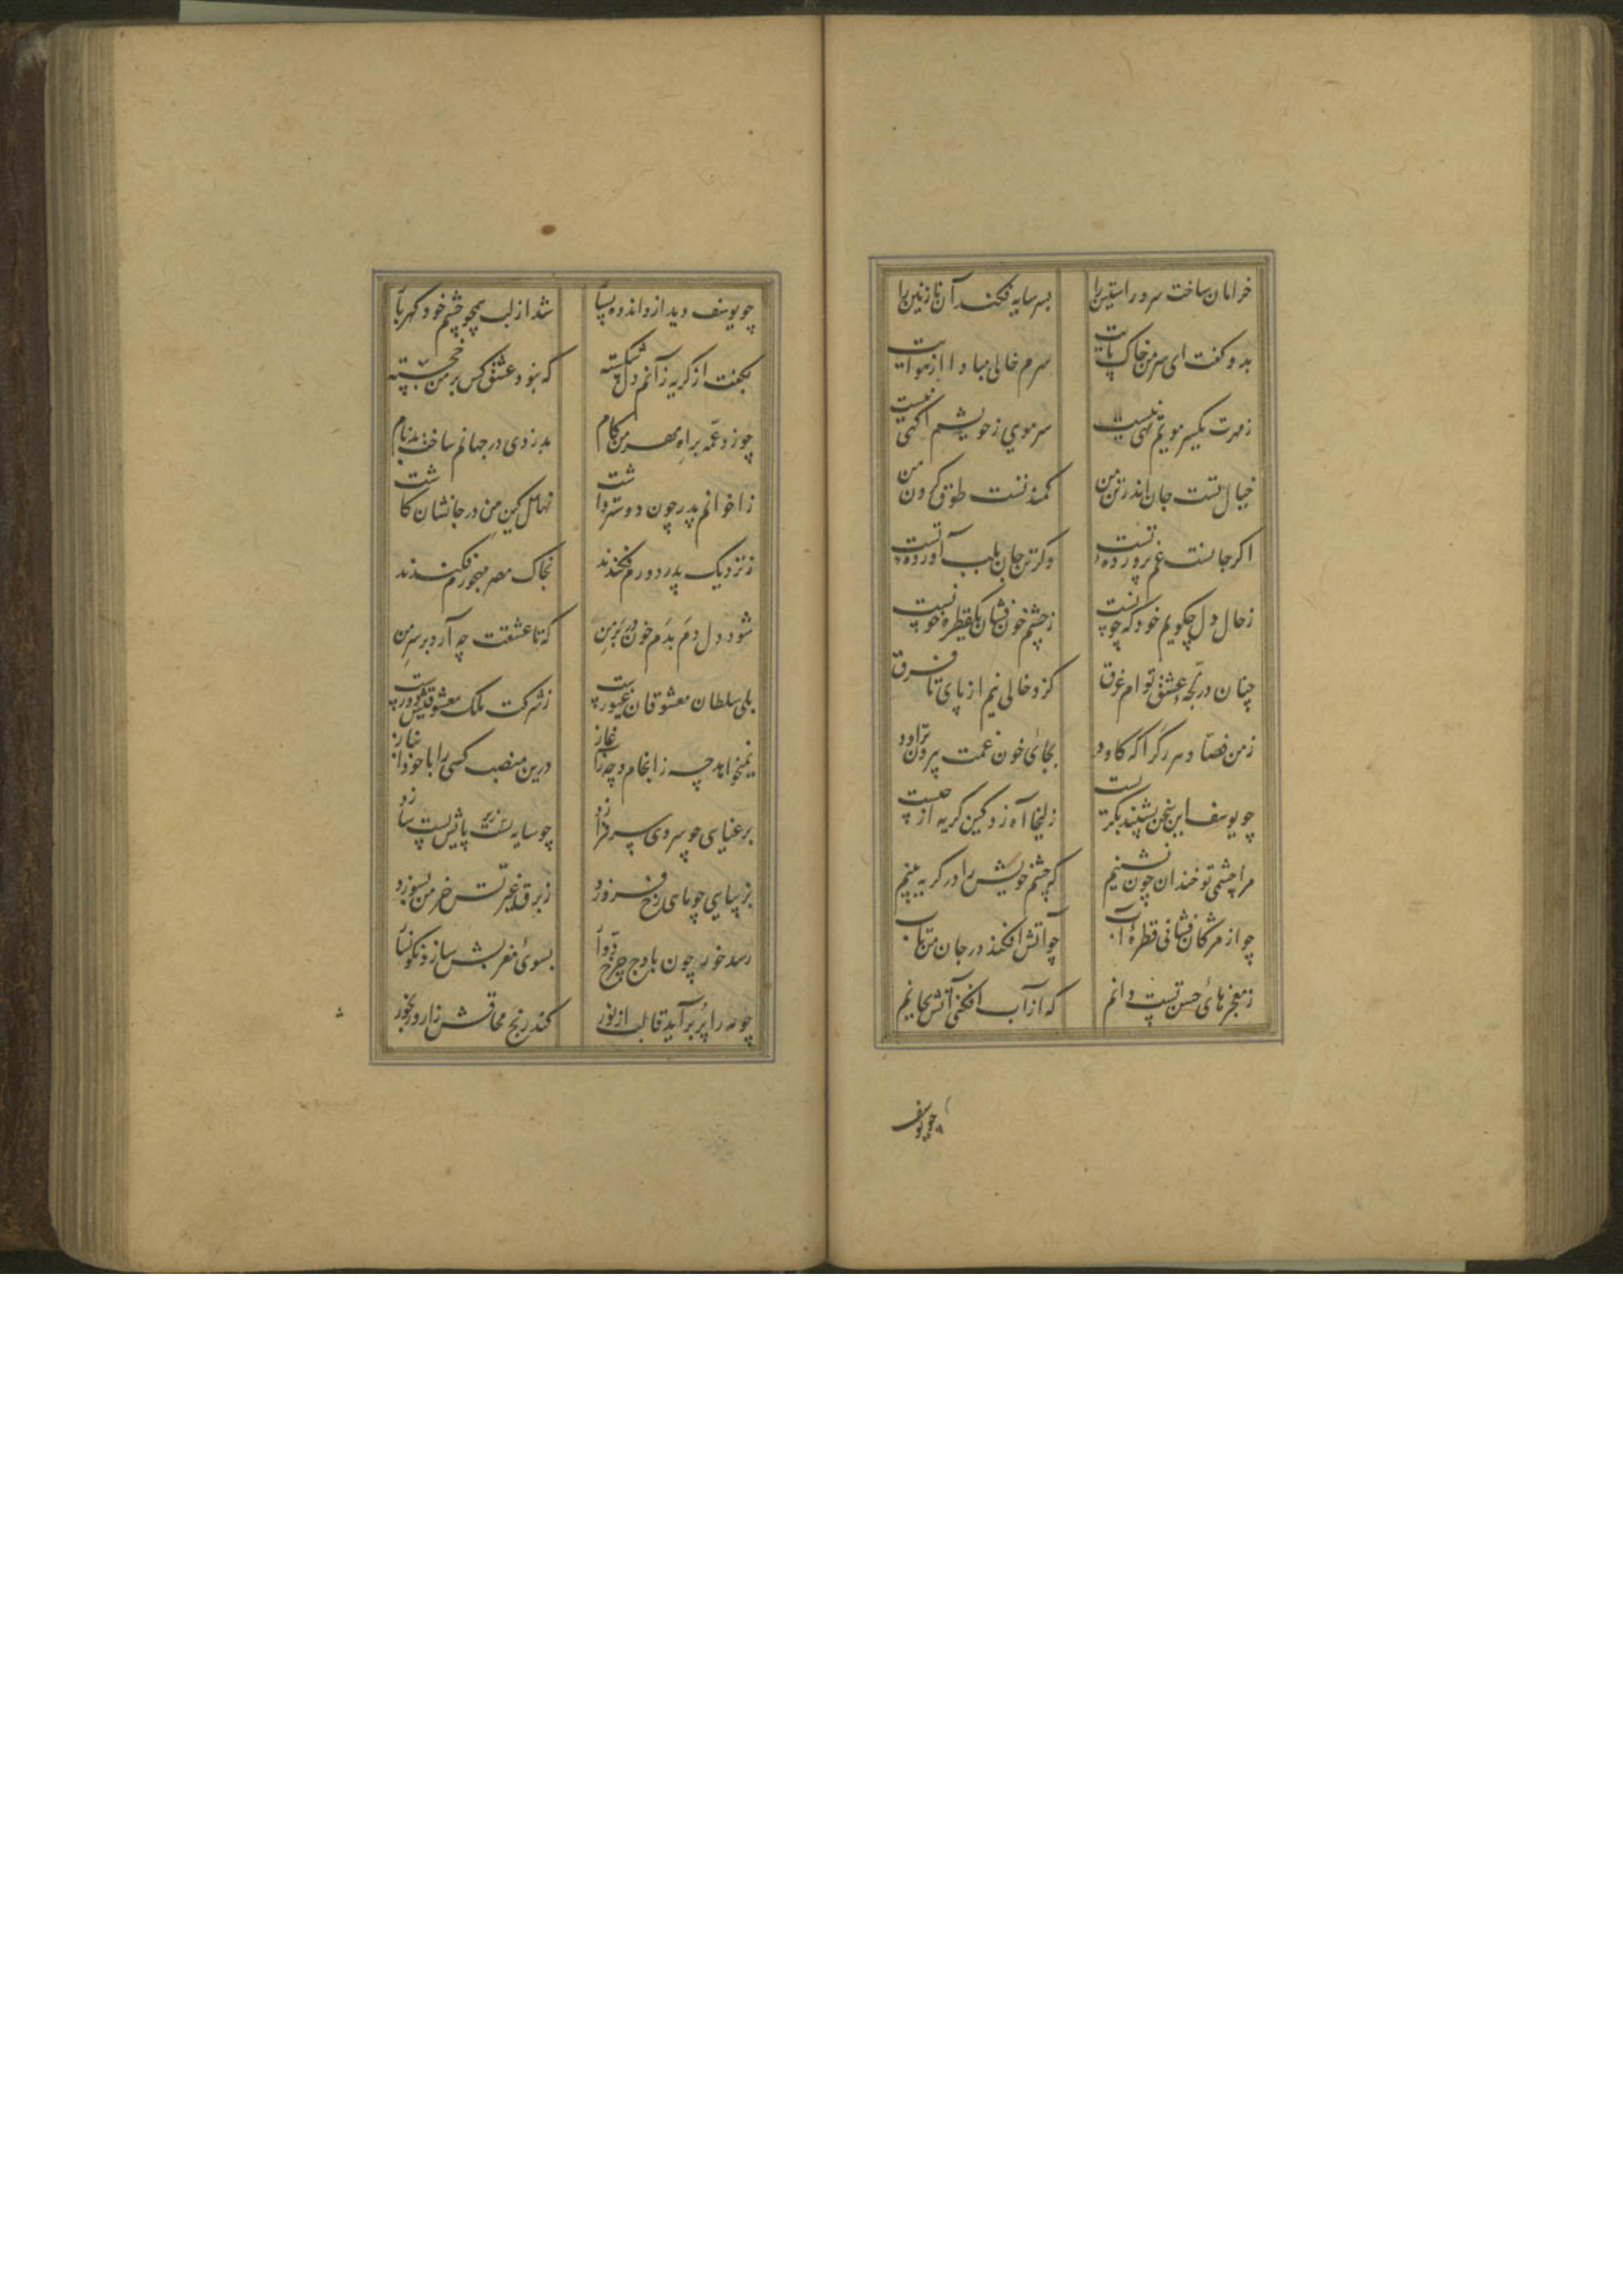 خرامان ساخت سرو راستین را بسر سایه فکند آن نازنین را
بدو گفت ای سر من خاک پایت سرم خالی مبادا از هوایت
ز مهرت یکسر مویم تهی نیست سر موی ز خویشم آگهی نیست
خیال تست جان اندر تن من کمند تست طوق گردن من
اگر جانست غم پرورده تست وگر تن جان بلب آورده تست
ز حال دل چگویم خود که چونست ز چشم خون فشان یکقطره خونست
چنان در لجه عشق توام غرق کزو خالی نیم از پای تا فرق
ز من فصاد هر رگرا که کاود بجای خون غمت بیرون تراود
چو یوسف این سخن بشنید بگریست زلیخا آه زد کین گریه از چیست
مرا چشمی تو خندان چون نشینم که چشم خویش را در گریه بینم
چو از مژگان فشانی قطره آب چو آتش افکند در جان من تاب
ز معجزهای حسن تست دانم که از آب افکنی آتش بجانم
چو یوسف
چو یوسف دید ازو اندوه بسیار شد از لب همچو چشم خود گهربار
بگفت از گریه زانم دل شکسته که نبود عشق کس بر من خجسته
چو زد عمه براه مهر من گام بدزدی در جهانم ساخت بدنام
ز اخوانم پدر چون دوستر داشت نهال کین من در جانشان کاشت
ز نزدیک پدر دورم فکندند بخاک مصر مهجورم فکندند
شود دل دم بدم خون در بر من که تا عشقت چه آرد بر سر من
بلی سلطان معشوقان غیورست ز شرکت ملک معشوقیش دورست
نمیخواهد چه ز انجام و چه ز آغاز درین منصب کسی را با خود انباز
برعنایی چو سروی سر فرازد چو سایه زیر پایش پست سازد
بزیبایی چو ماهی رخ فروزد ز برق غیرتش خرمن بسوزد
رسد خور چون باوج چرخ دوار بسوی مغربش سازد نگونسار
چو مه را پر برآید قالب از نور کند رنج محاقش زار و رنجور